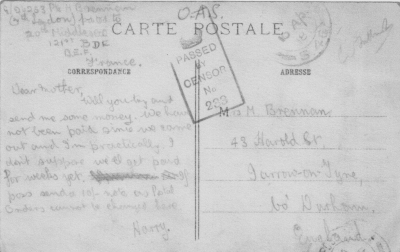 O.A.S.
Brennan
20th Middlesex
121st BDE
B.E.F.
France.
CARTE POSTALE
PASSED
BY
CENSOR
No
CORRESPONDANCE
ADRESSE
Dear Mother,
Will you try and
send me some money. We have
not been paid since we came
out and I'm practically
don't suppose we'll get paid
for weeks yet. if
you send as
Orders cannot be changed here
Harry.
M. Brennan
43 Harold St.
Jarrow-on-Tyne,
Co Durham.
England.